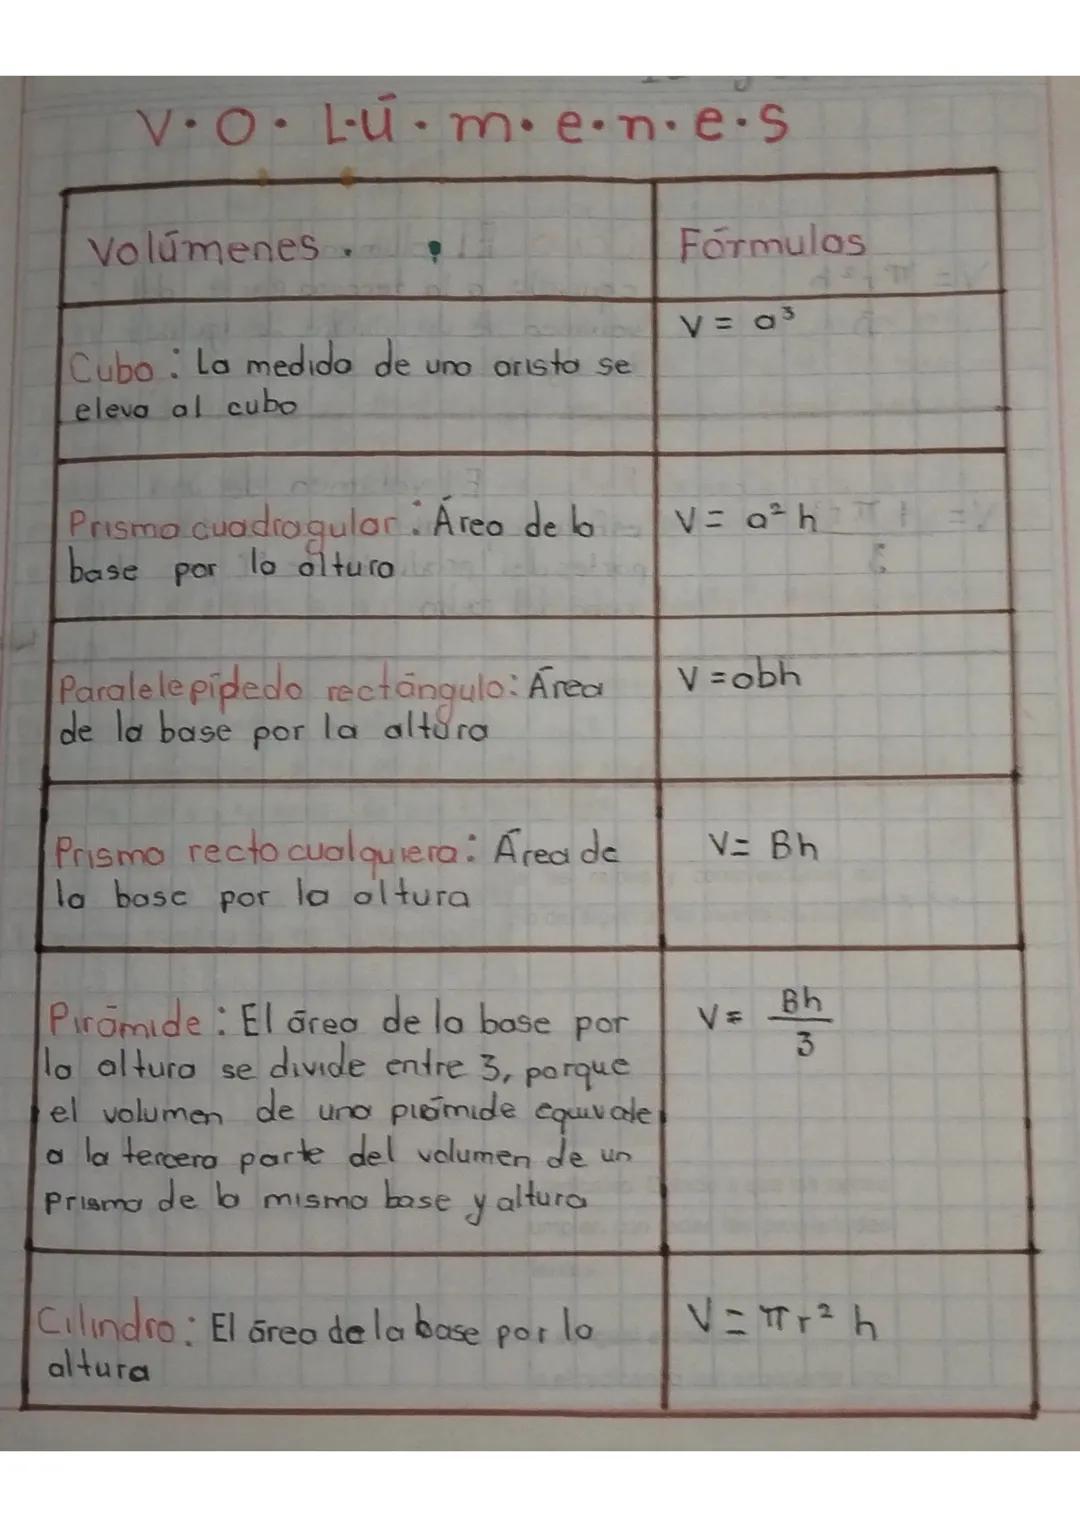 V·O·LÚ·m·e·n·e·s
Volúmenes.
Fórmulas
Cubo: La medida de una arista se
eleva al cubo
V = a³
Prisma cuadragular: Área de la
base por la altura
V = a² h
Paralelepípedo rectángulo: Área
de la base por la altura
V = abh
Prisma recto cualquiera: Área de
la base por la altura
V = Bh
Pirámide: El área de la base por
la altura se divide entre 3, porque
el volumen de una pirámide equivale
a la tercera parte del volumen de un
prisma de la misma base y altura
V = Bh/3
Cilindro: El área de la base por la
altura
V = πr² h